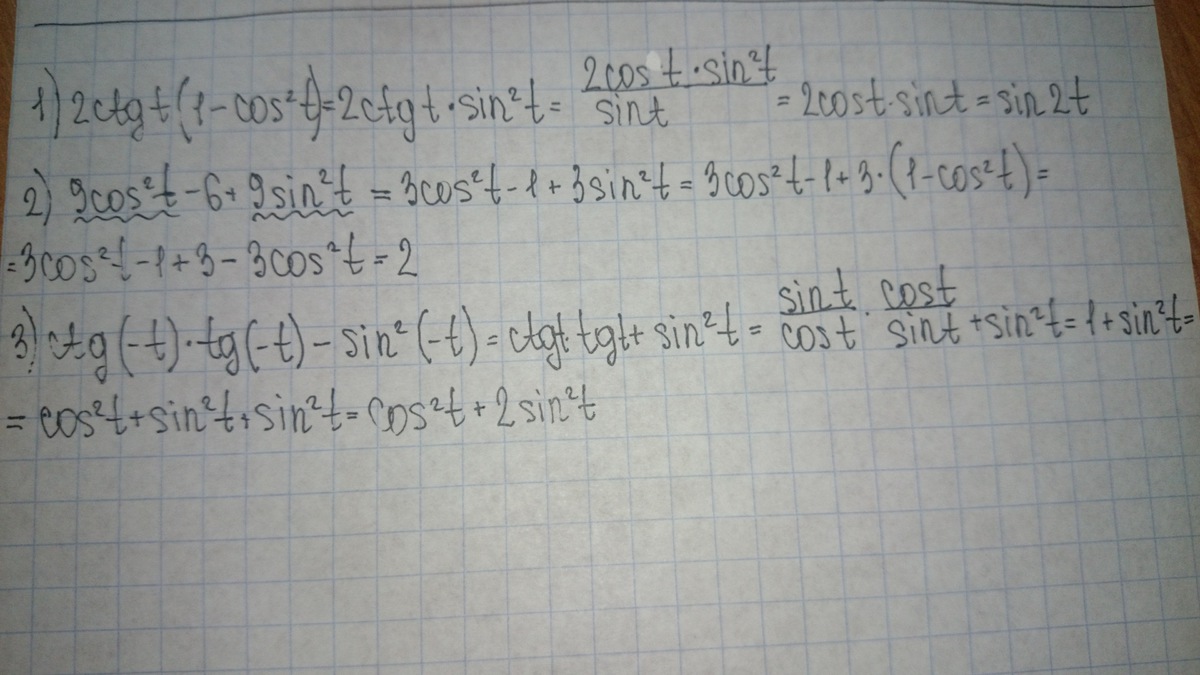 1) 2ctg t (1-cos²t)=2ctg t·sin²t= 2cos t·sin²t/sint = 2cost·sint=sin2t
2) 9cos²t-6+9sin²t = 3cos²t-1+3sin²t=3cos²t-1+3·(1-cos²t)=
=3cos²t-1+3-3cos²t=2
3) ctg(-t)·tg(-t)-sin²(-t)=ctgt·tgt+sin²t= sint/cost · cost/sint +sin²t=1+sin²t=
=cos²t+sin²t+sin²t=cos²t+2sin²t